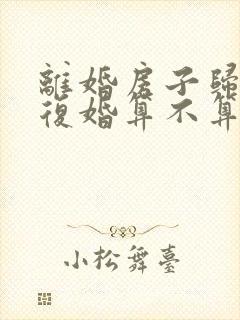 離婚房子歸
復婚算不算
小松舞臺